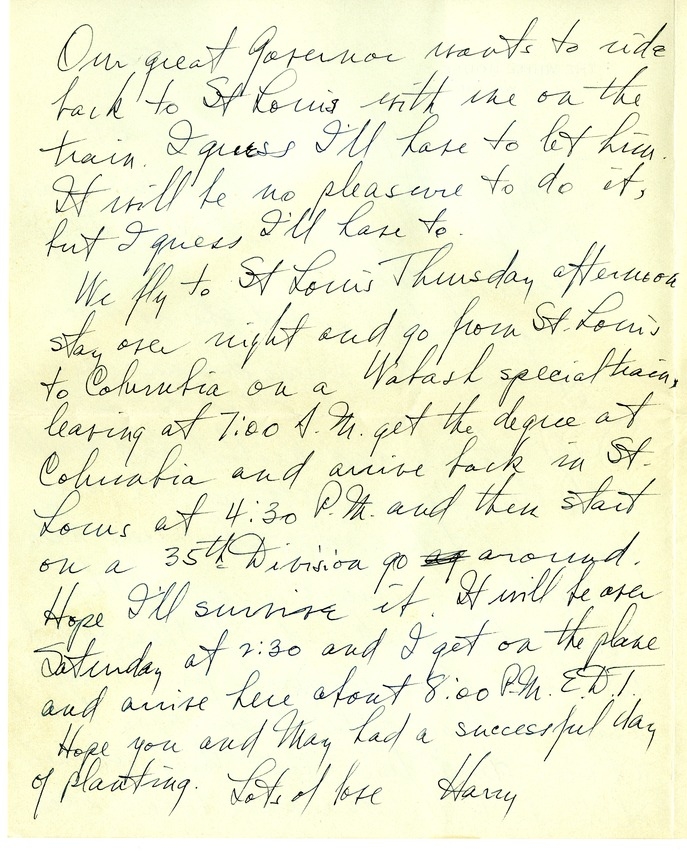 Our great Governor wants to ride
back to St Louis with me on the
train. I guess I'll have to let him.
It will be no pleasure to do it,
but I guess I'll have to.
We fly to St Louis Thursday afternoon
stay over night and go from St. Louis
to Columbia on a Wabash special train,
leaving at 7:00 A.M. get the degree at
Columbia and arrive back in St.
Louis at 4:30 P.M. and then start
on a 35th Division go around.
Hope I'll survive it. It will be over
Saturday at 2:30 and I get on the plane
and arrive here about 8:00 P.M. E.D.T.
Hope you and May had a successful day
of planting. Lots of love Harry